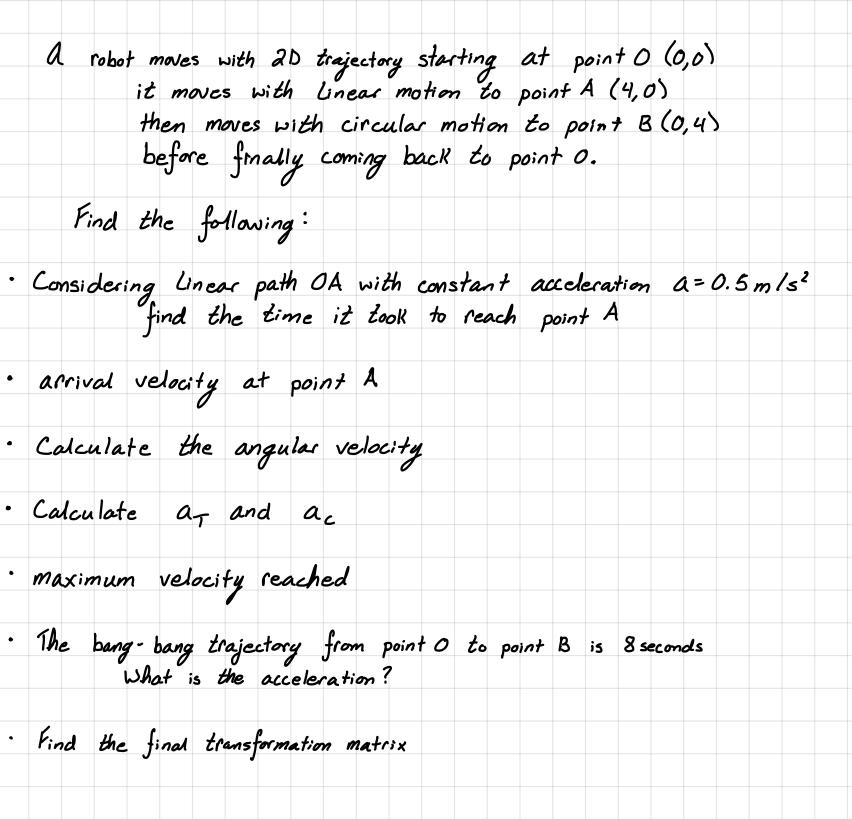 a robot moves with 2D trajectory starting at point O (0,0)
it moves with linear motion to point A (4,0)
then moves with circular motion to point B (0,4)
before finally coming back to point O.
Find the following:
• Considering linear path OA with constant acceleration a = 0.5 m/s²
find the time it took to reach point A
• arrival velocity at point A
• Calculate the angular velocity
• Calculate a_T and a_c
• maximum velocity reached
• The bang-bang trajectory from point O to point B is 8 seconds
What is the acceleration?
• Find the final transformation matrix